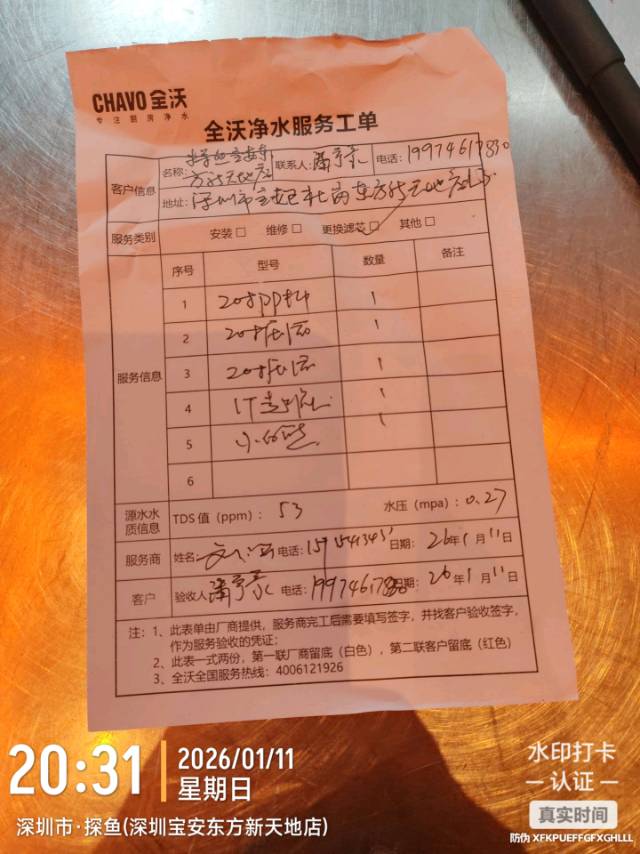 CHAVO 全沃
专注厨房净水
全沃净水服务工单
客户信息
名称: 东方新天地店
联系人:
电话: 19974617830
地址: 深圳市宝安区 东方新天地
服务类别
安装□ 维修□ 更换滤芯□ 其他□
服务信息
序号 型号 数量 备注
1 20寸PP棉 1
2 20寸 1
3 20寸 1
4 1T 1
5 1
6
源水水质信息
TDS 值（ppm）: 53 水压（mpa）: 0.27
服务商
姓名: 电话: 日期: 26年1月11日
客户
验收人 电话: 19974617830 日期: 26年1月11日
注：1、此表单由厂商提供，服务商完工后需要填写签字，并找客户验收签字，
作为服务验收的凭证；
2、此表一式两份，第一联厂商留底（白色），第二联客户留底（红色）
3、全沃全国服务热线：4006121926
20:31
2026/01/11
星期日
深圳市·探鱼(深圳宝安东方新天地店)
水印打卡
认证
真实时间
防伪 XFKPUEFFGFXGHLLL